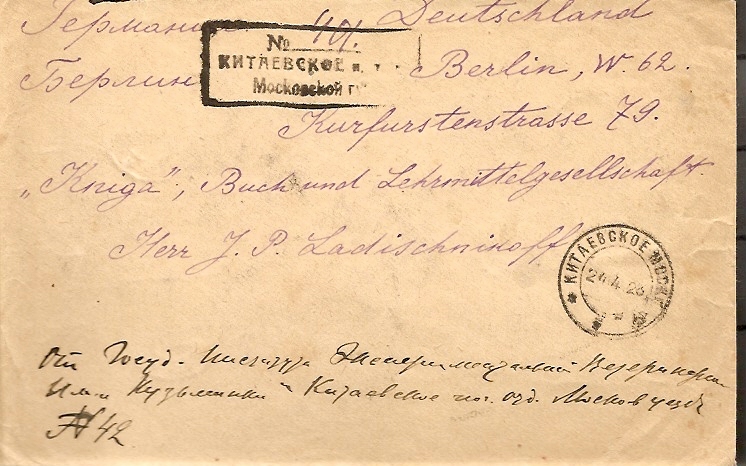 Германия Deutschland
№ 401.
КИТАЕВСКОЕ п. т.
Московской г
Берлин Berlin, W. 62.
Kurfurstenstrasse 79.
„Kniga", Buch und Lehrmittelgesellschaft.
Herr J. P. Ladischnikoff
КИТАЕВСКОЕ МОСК
24.4.26
от Госуд. Института Экспериментальной Ветеринарии
Кузьминки Китаевское по. отд. Московск уезд
N 42